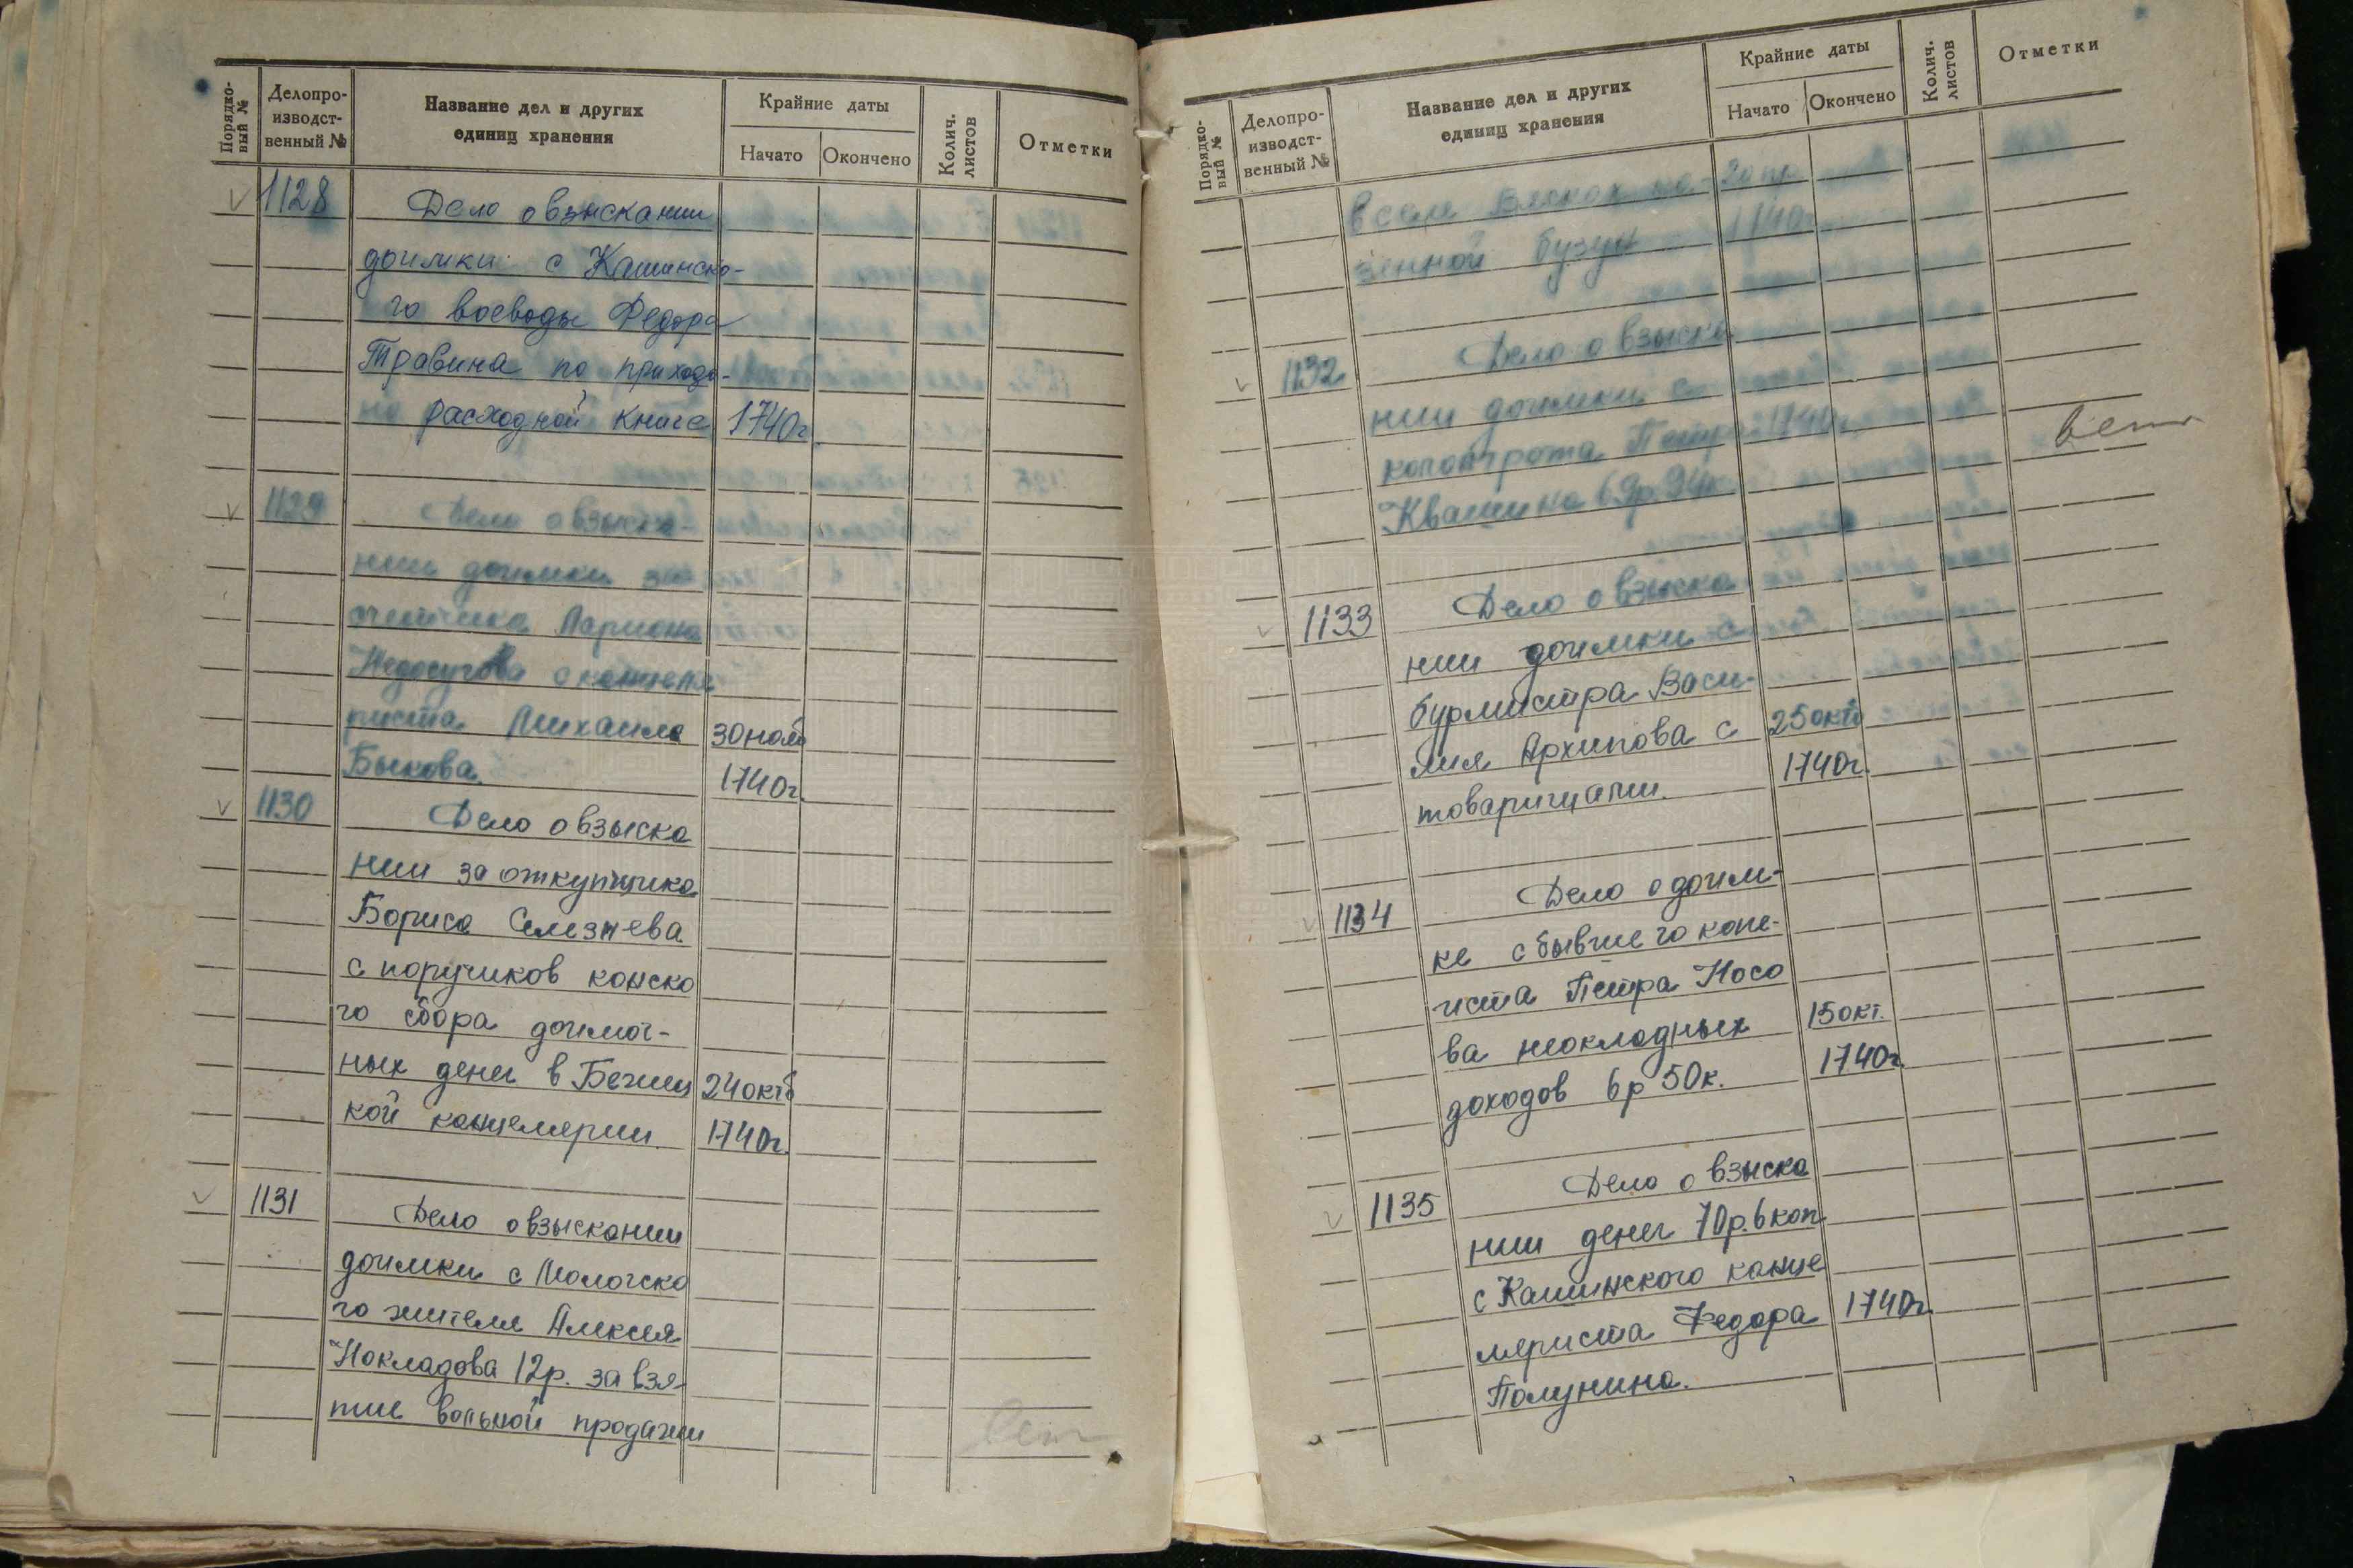 Порядко-
вый №
Делопро-
изводст-
венный №
Название дел и других
единиц хранения
Крайние даты
Начато
Окончено
Колич.
листов
Отметки
1128
Дело о взыскании
доимки с Кашинско-
го воеводы Федора
Травина по приходо-
расходной книге 1740г.
1129
Дело о взыска-
нии доимки за
Лариона
Недосугова с канцеля
риста Михаила 30 нояб
Быкова. 1740г.
1130
Дело о взыска
нии за откупщика
Бориса Селезнева
с поручиков конско
го сбора доимоч-
ных денег в Бежец 24 октб
кой канцелярии. 1740г.
1131
Дело о взыскании
доимки с Мологско
го жителя Алексея
Нокладова 12р. за взя-
тие вольной продажи
вет
Порядко-
вый №
Делопро-
изводст-
венный №
Название дел и других
единиц хранения
Крайние даты
Начато
Окончено
Колич.
листов
Отметки
в селе
зенной бузун 1740г.
1132
Дело о взыска
нии доимки с
копоитрота Петра 1740г.
вет
Квашина 6 9р. 94к
1133
Дело о взыска
нии доимки с
бурмистра Васи-
лия Архипова с 25 октб
товарищами. 1740г.
1134
Дело о доим-
ке с бывшего копе-
иста Петра Носо
ва неокладных 15 окт.
доходов 6р 50к. 1740г.
1135
Дело о взыска
нии денег 70р. 6 коп
с Кашинского канце
ляриста Федора 1740г.
Полунина.